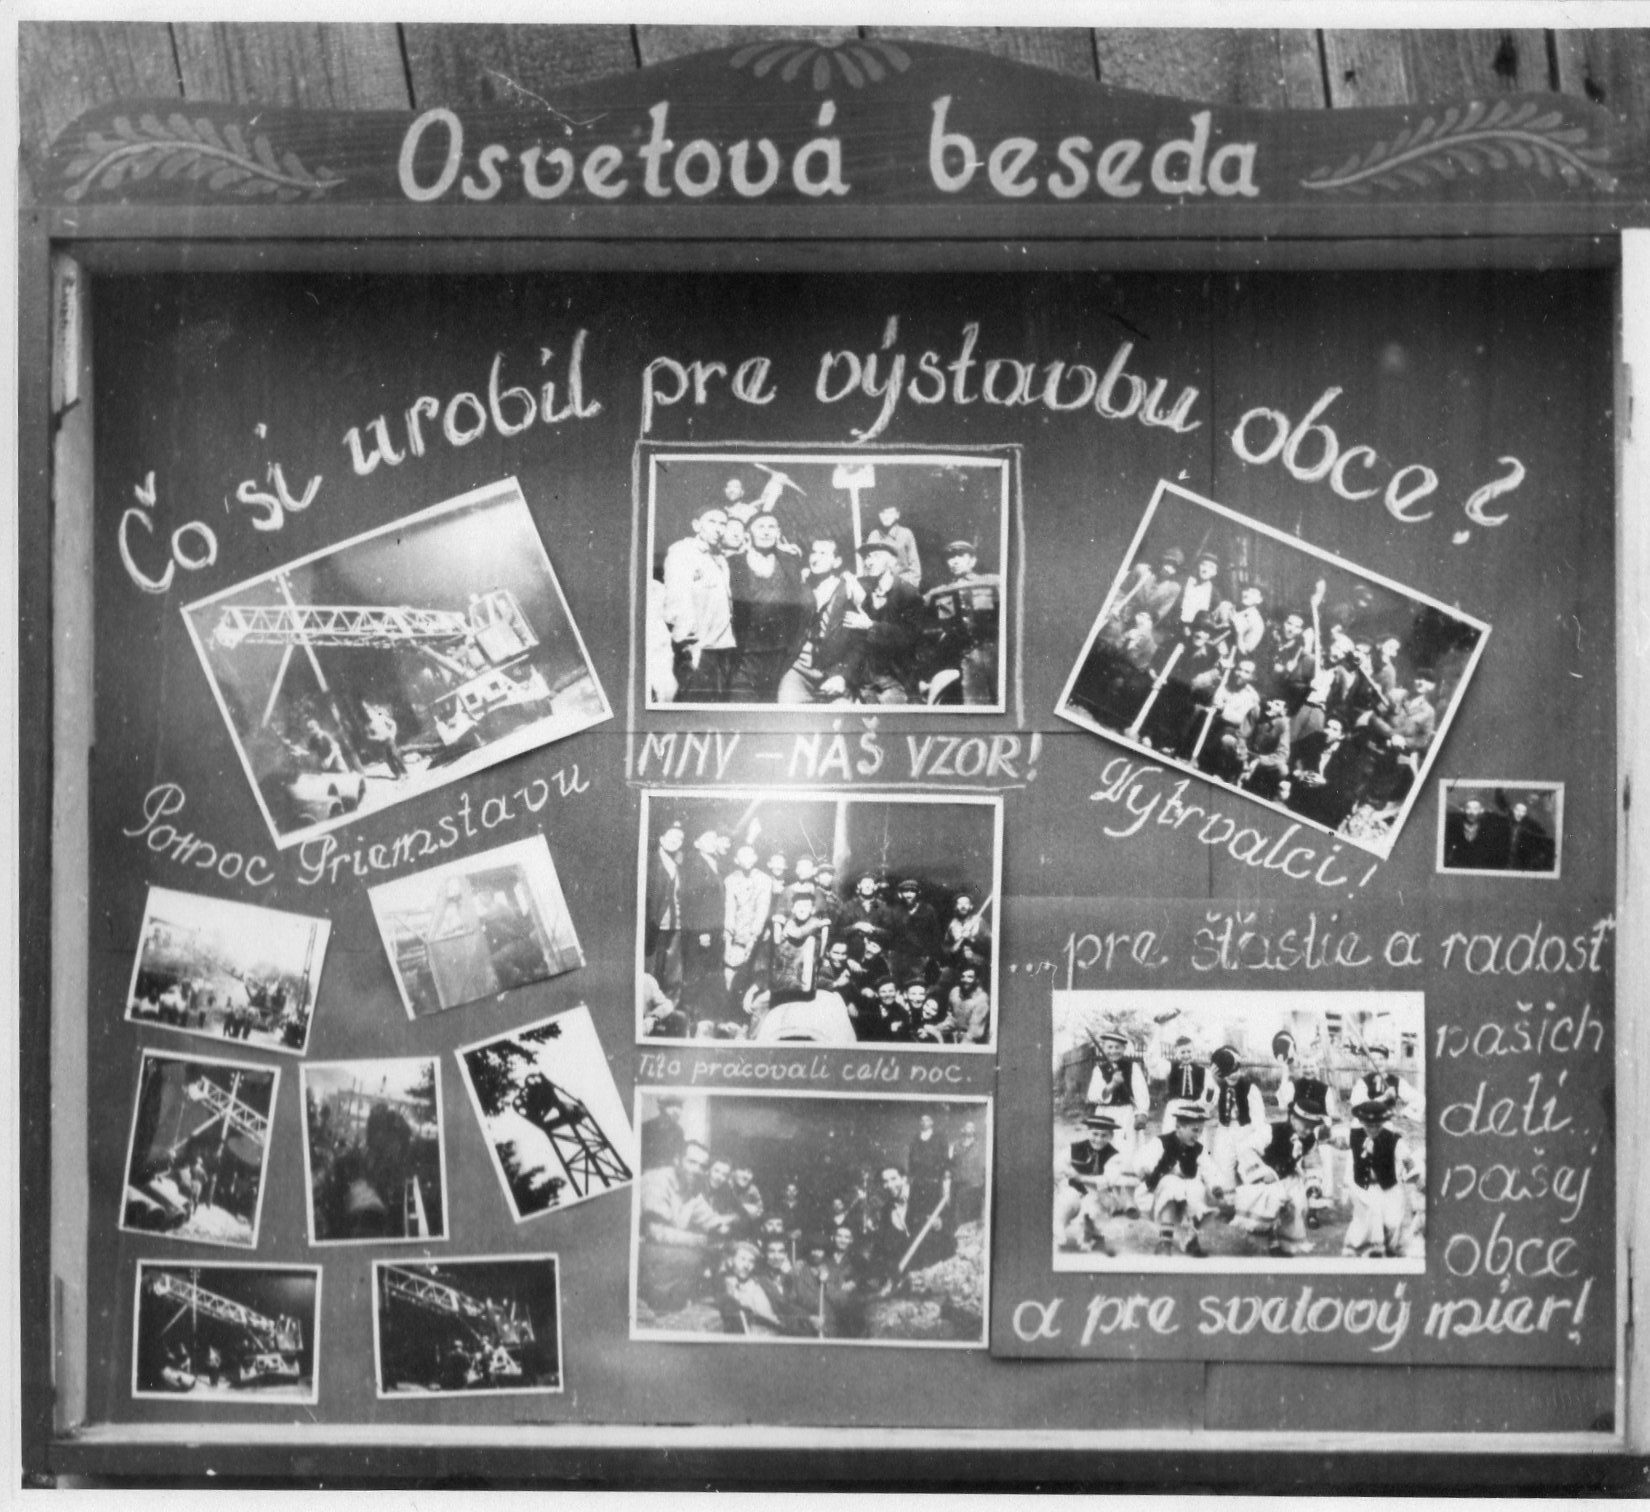 Osvetová beseda
Čo si urobil pre výstavbu obce?
Pomoc Priemstavu
MNV - NÁŠ VZOR!
Vytrvalci!
Títo pracovali celú noc.
... pre šťastie a radosť
našich
detí
našej
obce
a pre svetový mier!